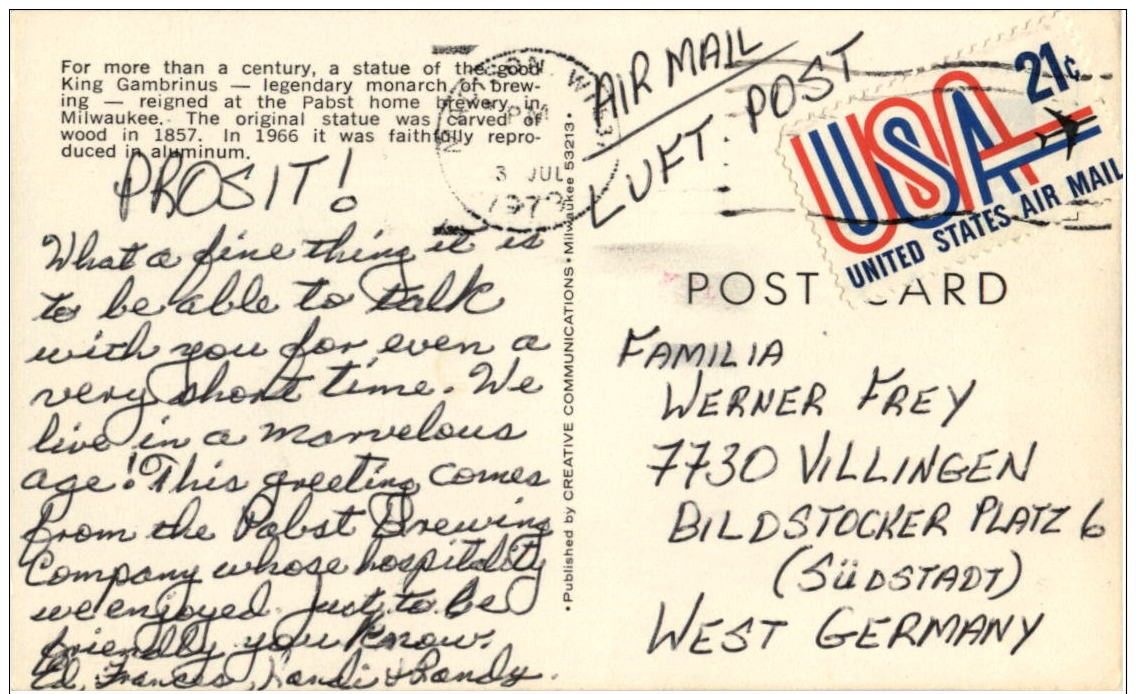 For more than a century, a statue of the good
King Gambrinus — legendary monarch of brew-
ing — reigned at the Pabst home brewery in
Milwaukee. The original statue was carved of
wood in 1857. In 1966 it was faithfully repro-
duced in aluminum.
PROSIT!
What a fine thing it is
to be able to talk
with you for even a
very short time. We
live in a marvelous
age! This greeting comes
from the Pabst Brewing
Company whose hospitality
we enjoyed. Just to be
friendly you know.
Ed, Frances, Randi & Randy.
• Published by CREATIVE COMMUNICATIONS • Milwaukee 53213 •
PM
3 JUL
197
AIR MAIL
LUFT. POST
21¢
USA
UNITED STATES AIR MAIL
POST CARD
FAMILIA
WERNER FREY
7730 VILLINGEN
BILDSTOCKER PLATZ 6
(SÜDSTADT)
WEST GERMANY